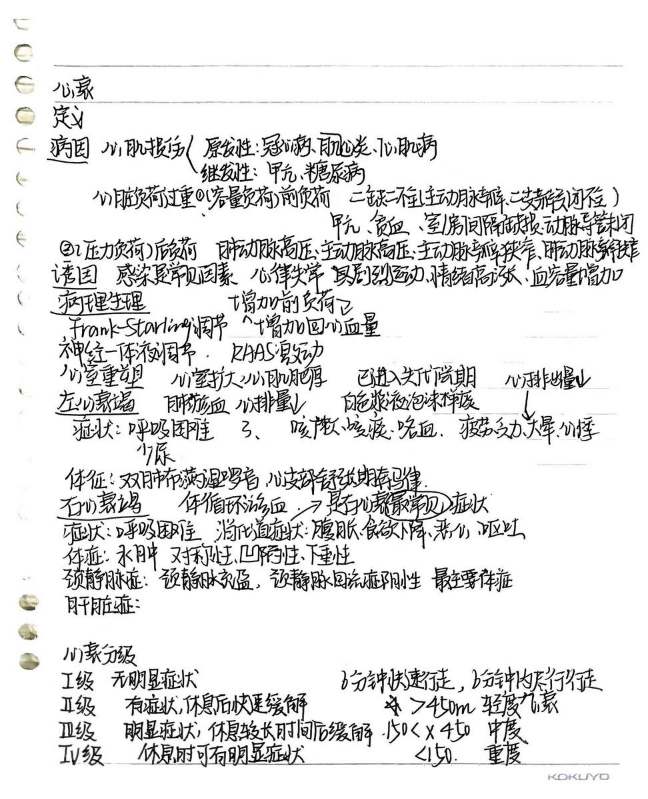 心衰
定义
病因 心肌损伤 原发性:冠心病、心肌炎、心肌病
继发性: 甲亢、糖尿病
心脏负荷过重①(容量负荷)前负荷 二全二不全(主动脉瓣、二尖瓣关闭不全)
甲亢、贫血、室/房间隔缺损、动脉导管未闭
②(压力负荷)后负荷 肺动脉高压、主动脉高压、主动脉瓣狭窄、肺动脉瓣狭窄
诱因 感染是常见因素、心律失常 剧烈运动、情绪高涨、血容量增加
病理生理 增加前负荷
Frank-Starling调节 增加回心血量
神经-体液调节. RAAS激动
心室重塑 心室扩大、心肌肥厚 已进入失代偿期 心排出量↓
左心衰竭 肺淤血 心排量↓ 白色浆液泡沫样痰
症状:呼吸困难 3、 咳嗽、咳痰、咯血. 疲劳乏力、头晕、心悸
少尿
体征:双肺布满湿啰音、心尖部舒张期奔马律
右心衰竭 体循环淤血 → 是右心衰最常见症状
症状:呼吸困难 消化道症状:腹胀、食欲下降、恶心、呕吐
体症: 水肿 对称性、凹陷性、下垂性
颈静脉症: 颈静脉充盈, 颈静脉回流症阳性 最主要体症
肝脏症:
心衰分级
I级 无明显症状 6分钟快速行走, 6分钟内尽行行走
II级 有症状,休息后快速缓解 >450m 轻度心衰
III级 明显症状,休息较长时间后缓解 150<x<450 中度
IV级 休息时可有明显症状 <150. 重度
KOKUYO